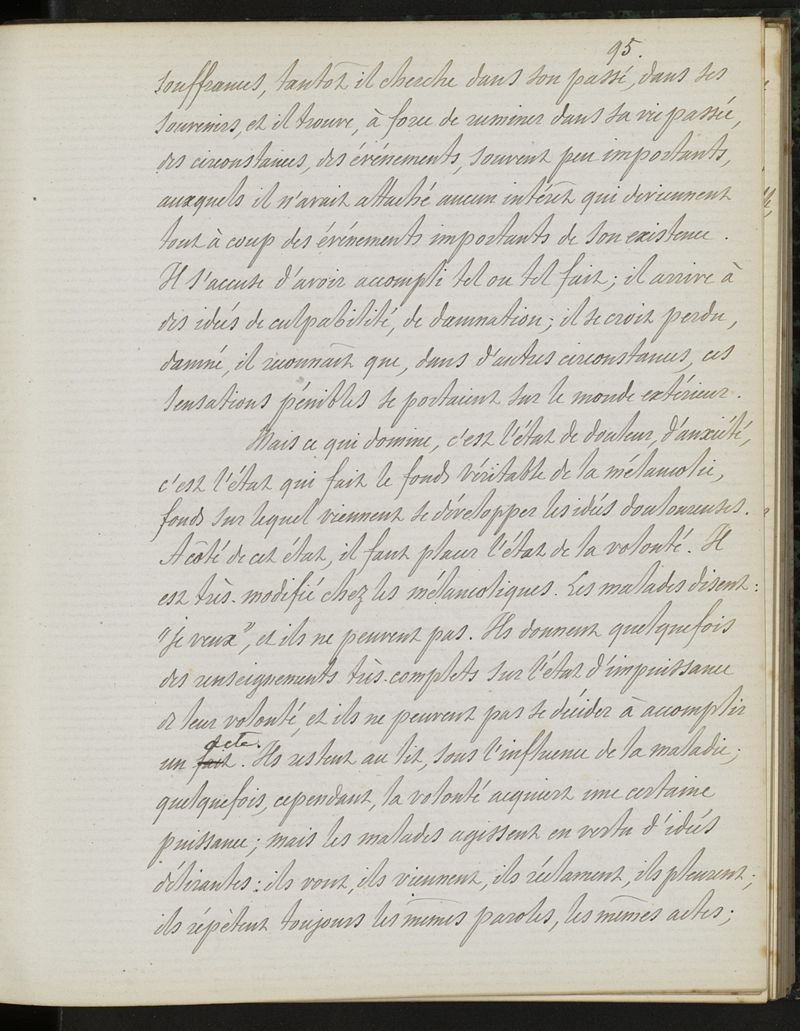 95.
souffrances, tantôt il cherche dans son passé, dans ses
souvenirs, et il trouve, à force de ruminer dans sa vie passée,
des circonstances, des événements, souvent peu importants,
auxquels il n'avait attaché aucun intérêt qui deviennent
tout à coup des événements importants de son existence.
Il s'accuse d'avoir accompli tel ou tel fait; il arrive à
des idées de culpabilité, de damnation; il se croit perdu,
damné, il reconnaît que, dans d'autres circonstances, ces
sensations pénibles se portaient sur le monde extérieur.
Mais ce qui domine, c'est l'état de douleur, d'anxiété,
c'est l'état qui fait le fonds véritable de la mélancolie,
fonds sur lequel viennent se développer les idées douloureuses.
A côté de cet état, il faut placer l'état de la volonté. Il
est très-modifié chez les mélancoliques. Les malades disent:
"je veux", et ils ne peuvent pas. Ils donnent quelquefois
des renseignements très-complets sur l'état d'impuissance
de leur volonté, et ils ne peuvent pas se décider à accomplir
acte.
un fait. Ils restent au lit, sous l'influence de la maladie;
quelquefois, cependant, la volonté acquiert une certaine
puissance; mais les malades agissent en vertu d'idées
délirantes: ils vont, ils viennent, ils réclament, ils pleurent;
ils répètent toujours les mêmes paroles, les mêmes actes;